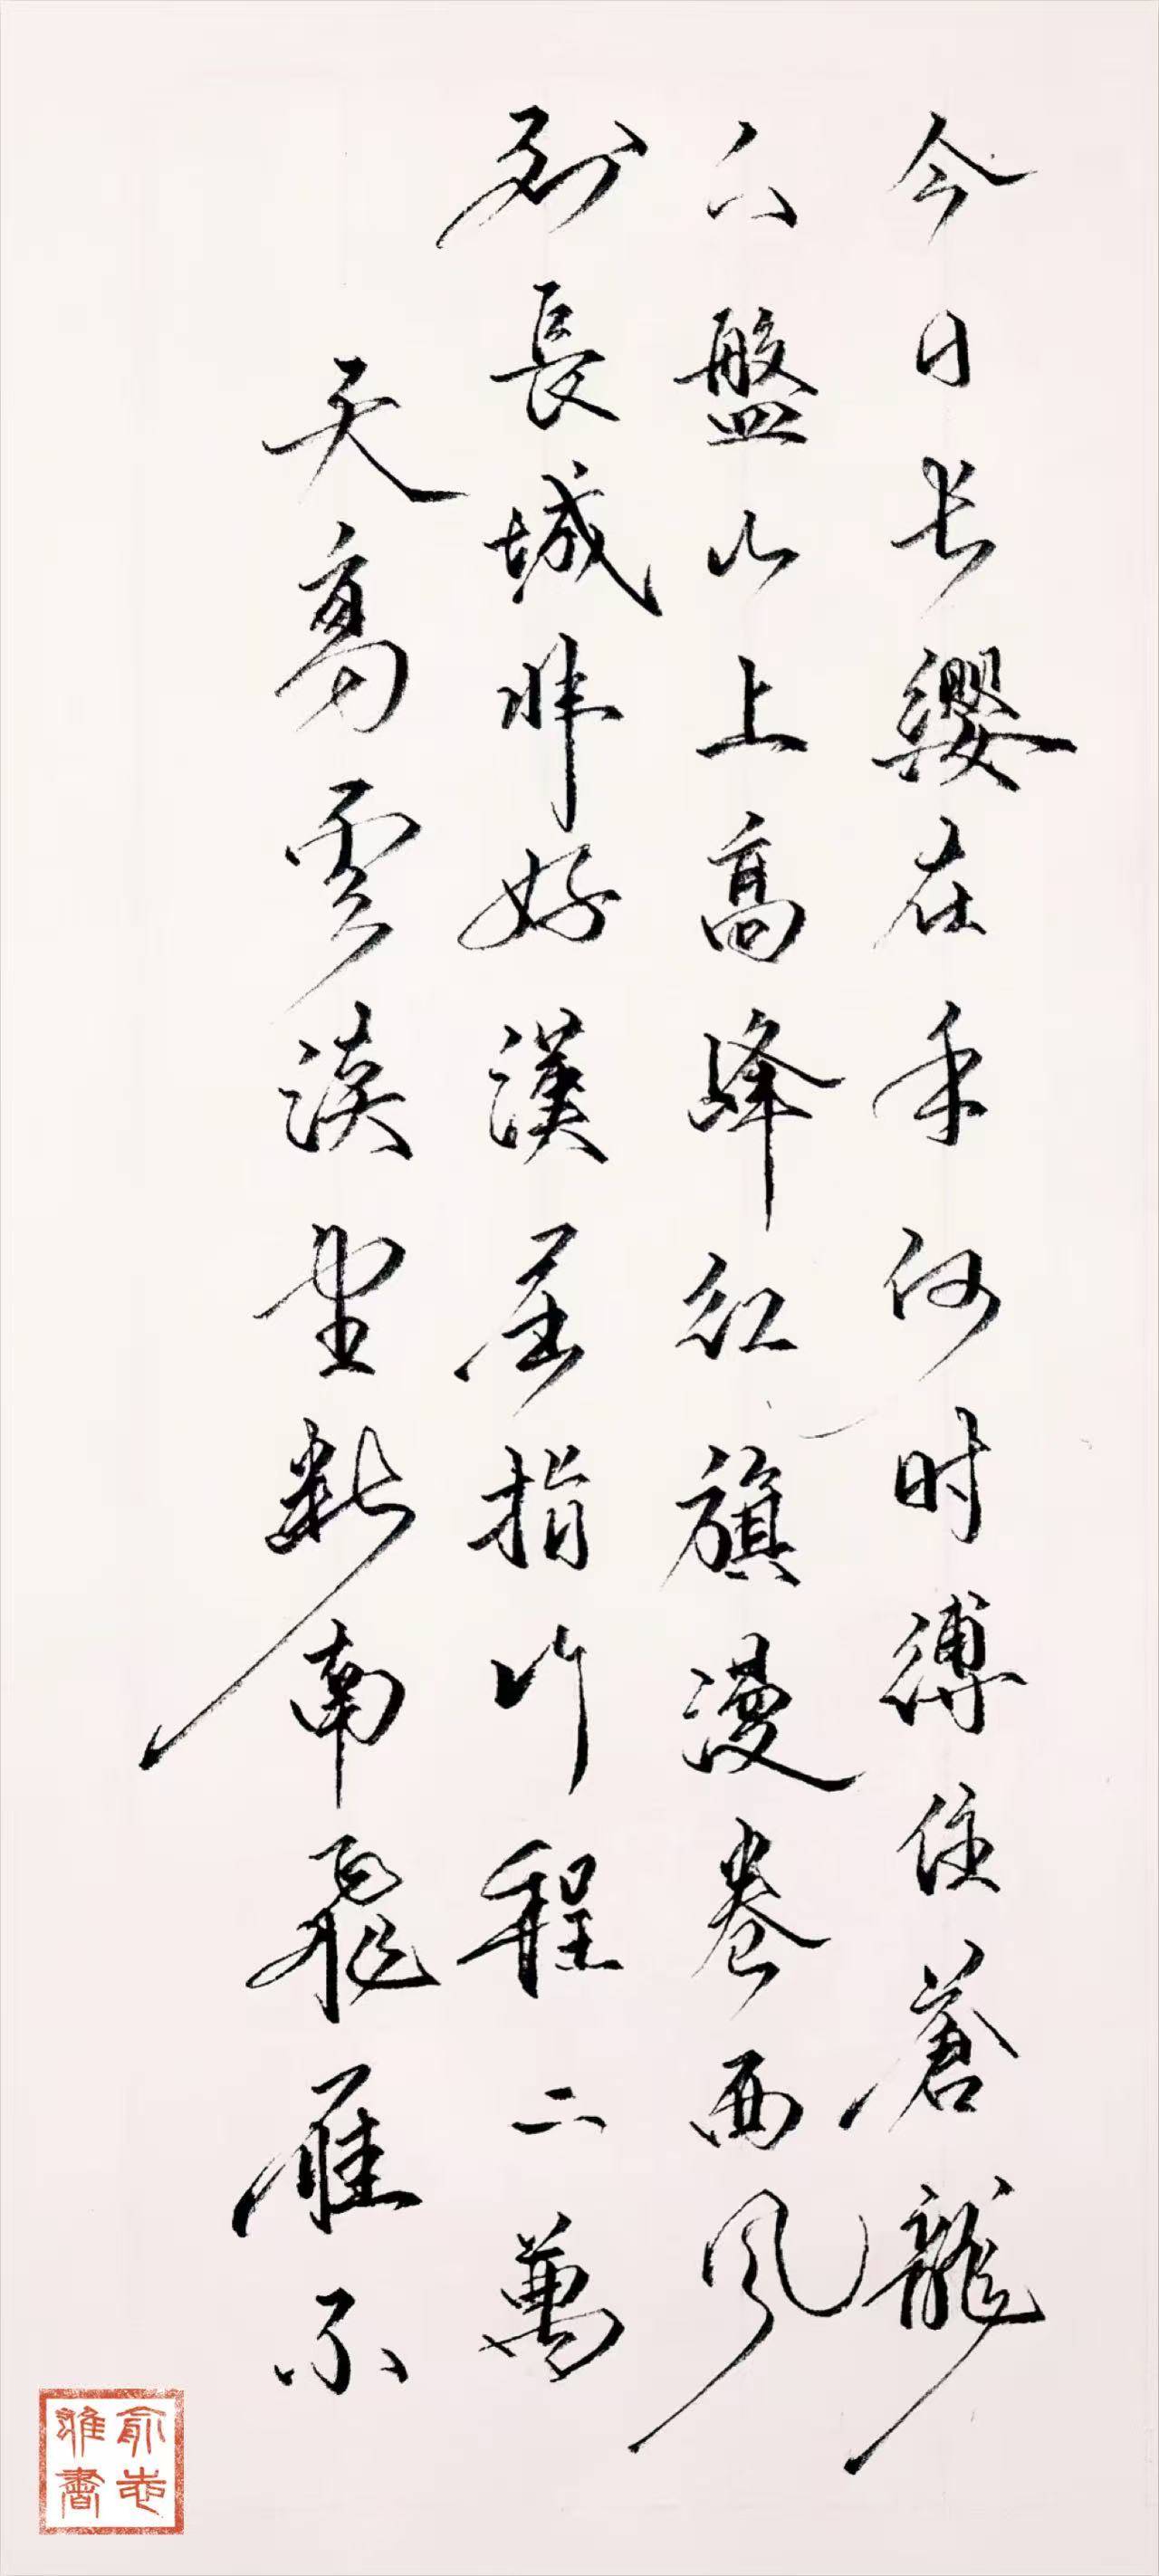 天高雲淡望斷南飛雁不
到長城非好漢屈指行程二萬
六盤山上高峰红旗漫卷西风
今日长缨在手何时缚住蒼龍
俞志書